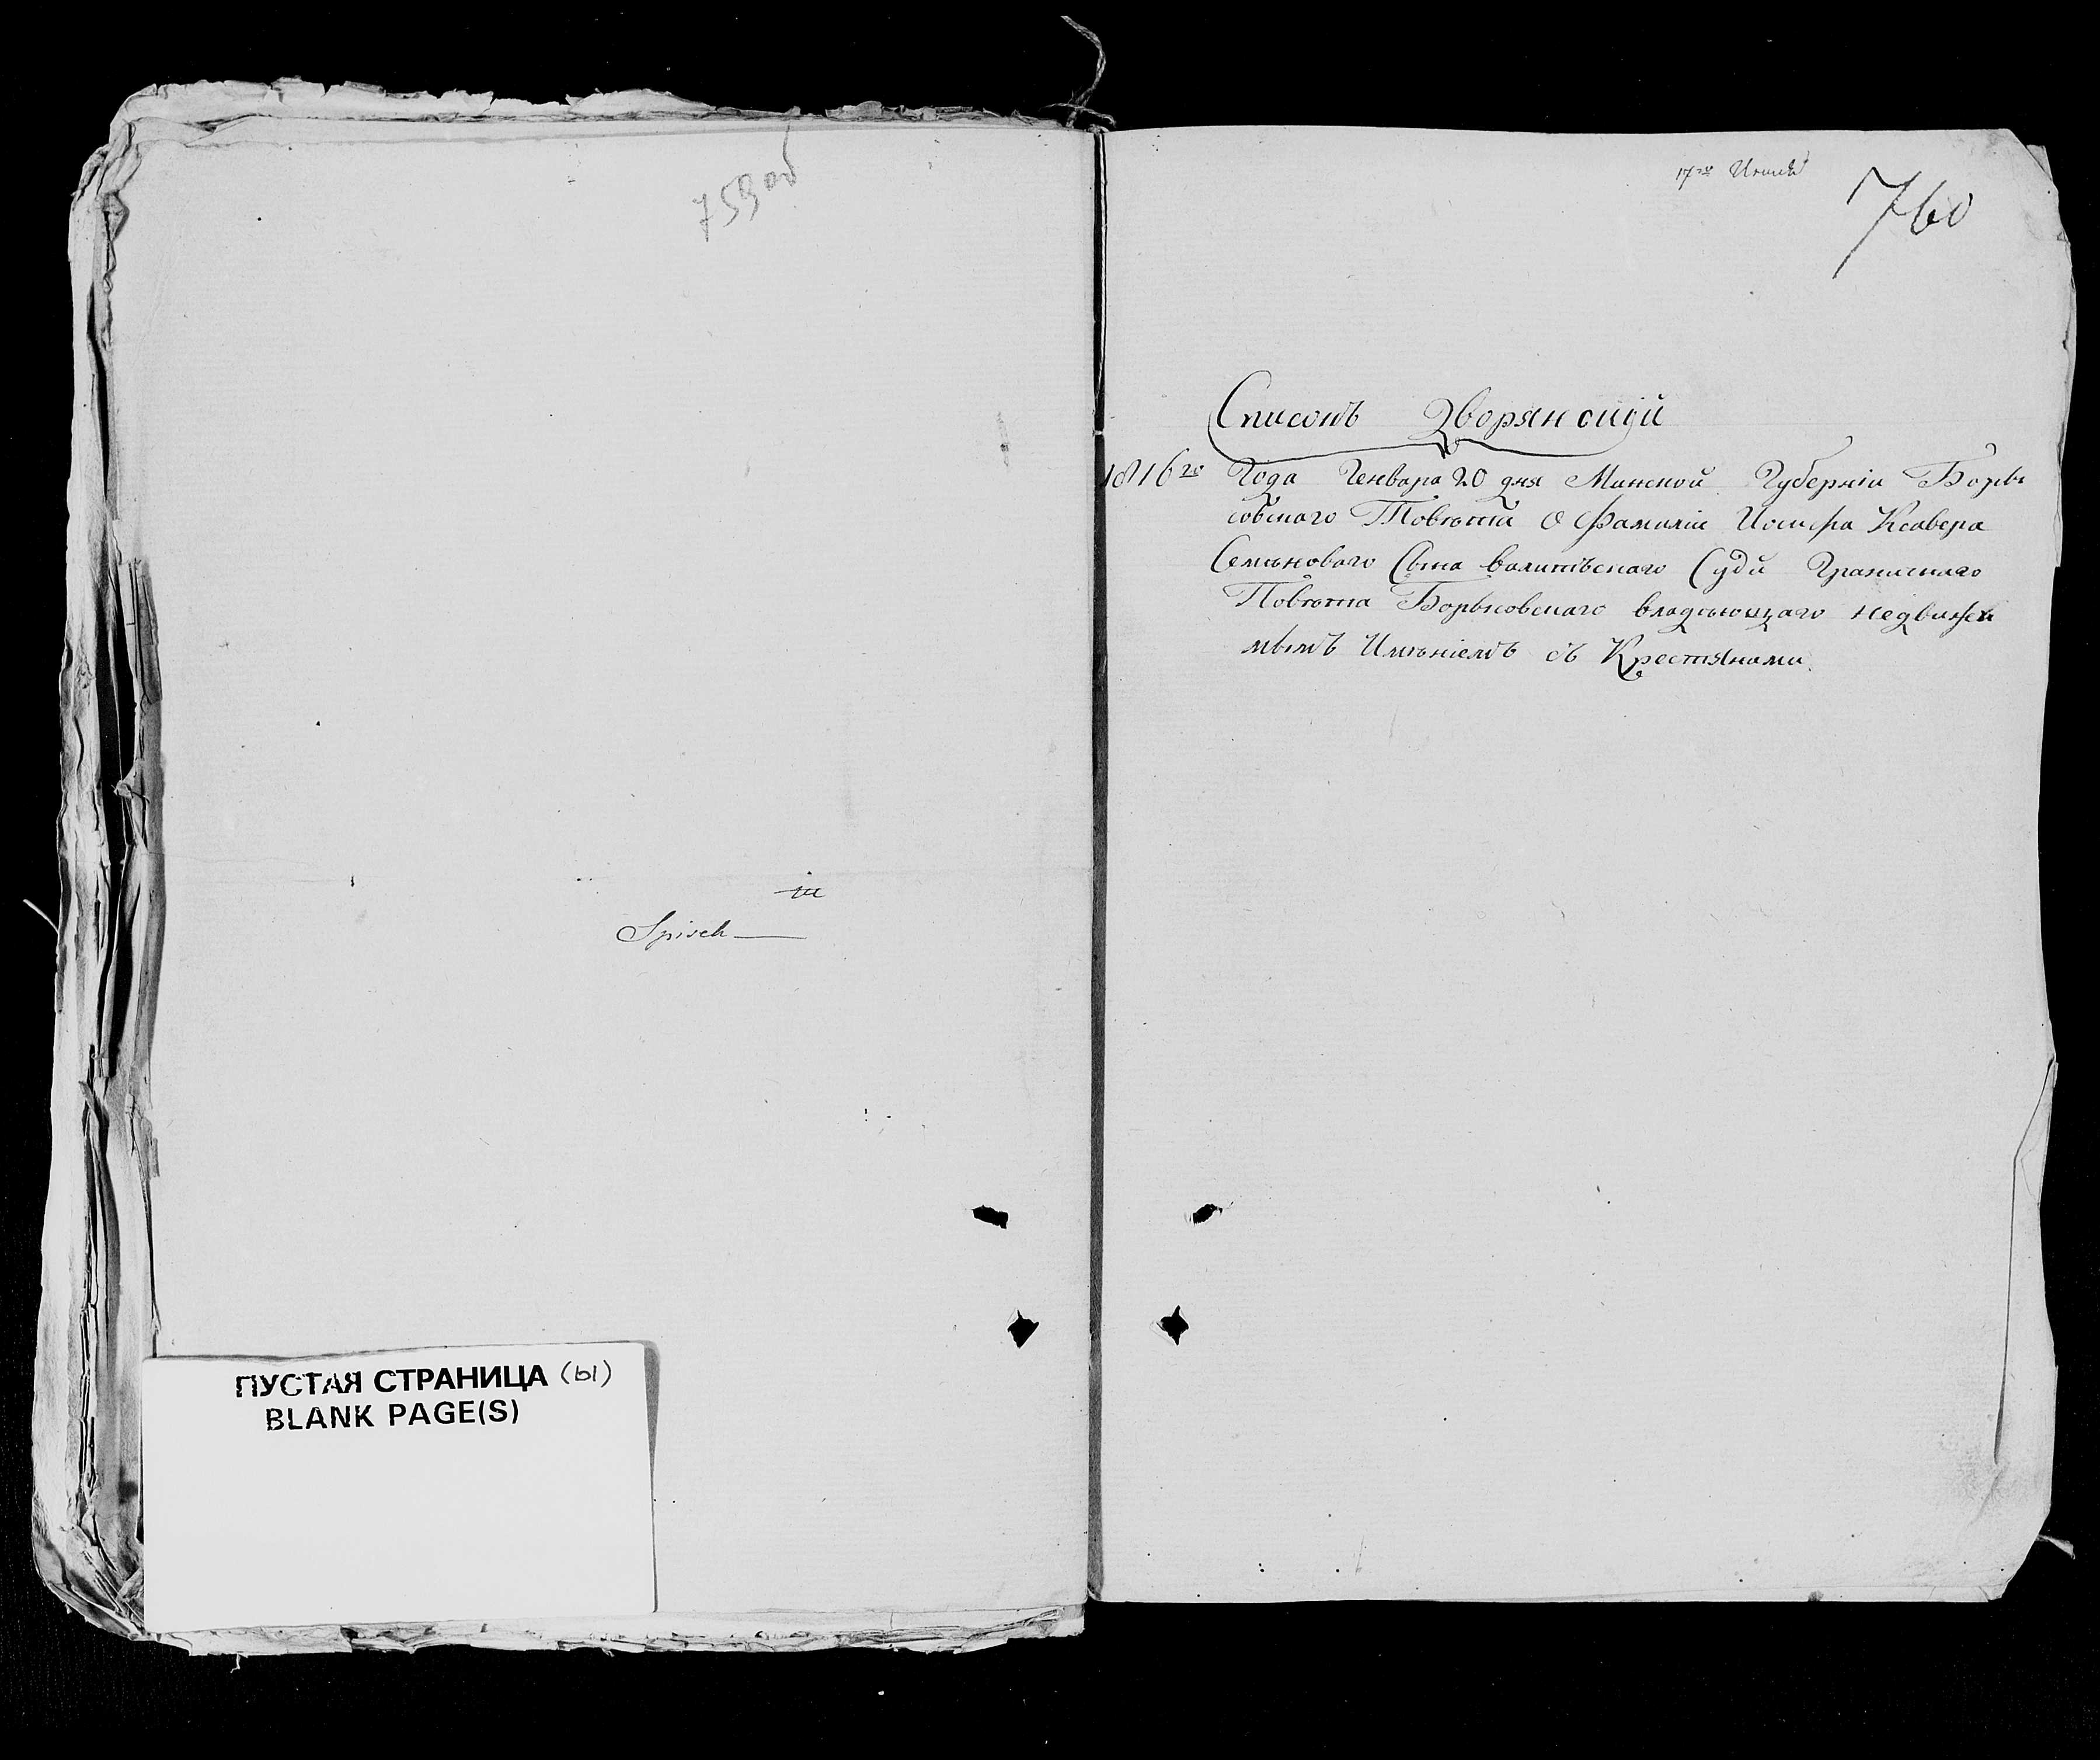 759об
Spisek
ПУСТАЯ СТРАНИЦА (ы)
BLANK PAGE(S)
760
Списокъ Дворянскій
1816го Года Генваря 20 дня Минской Губерніи Боры
совскаго Повѣта О Фамиліи Иосифа Ксавера
Семьноваго Сына Суди Граничнаго
Повѣта Борысовскаго владѣющаго недвижи
мымъ Имѣніемъ съ Крестянами.